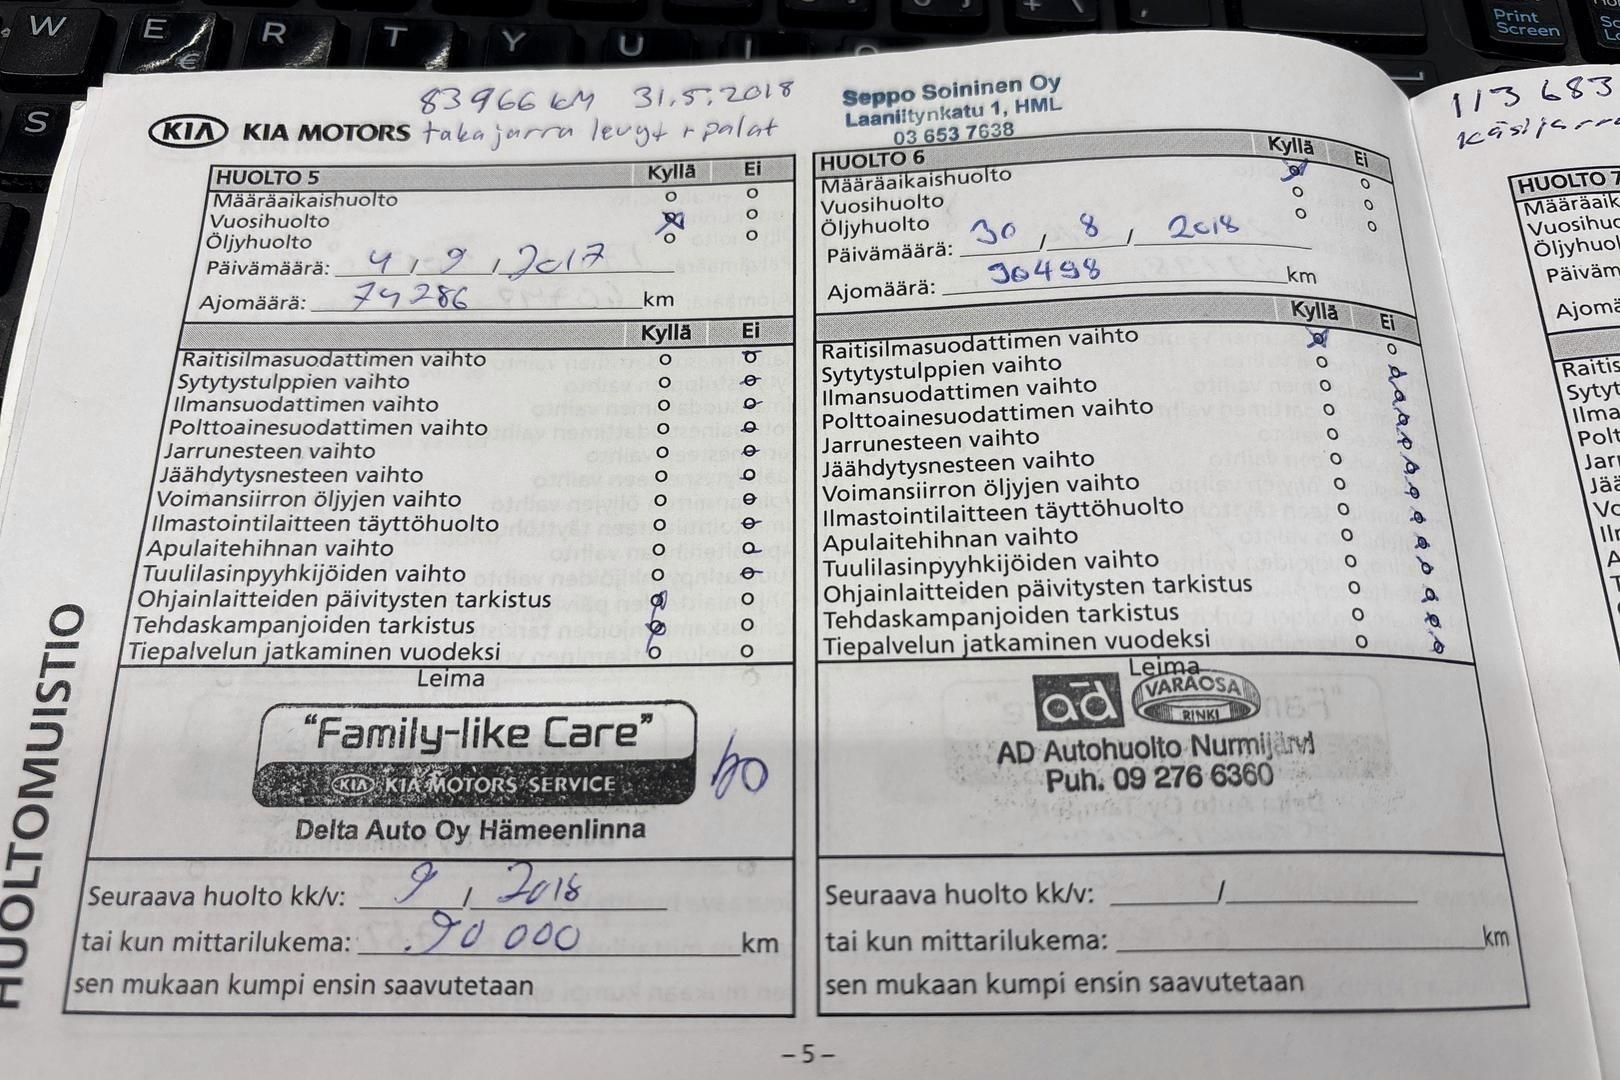 W E R T Y U I
€
S
Print
Screen
83966 KM 31.5.2018
takajarru levyt + palat
KIA KIA MOTORS
HUOLTO 5 Kyllä Ei
Määräaikaishuolto
Vuosihuolto
Öljyhuolto
Päivämäärä: 4 / 9 / 2017
Ajomäärä: 74286 km
Kyllä Ei
Raitisilmasuodattimen vaihto
Sytytystulppien vaihto
Ilmansuodattimen vaihto
Polttoainesuodattimen vaihto
Jarrunesteen vaihto
Jäähdytysnesteen vaihto
Voimansiirron öljyjen vaihto
Ilmastointilaitteen täyttöhuolto
Apulaitehihnan vaihto
Tuulilasinpyyhkijöiden vaihto
Ohjainlaitteiden päivitysten tarkistus
Tehdaskampanjoiden tarkistus
Tiepalvelun jatkaminen vuodeksi
Leima
"Family-like Care"
KIA KIA MOTORS SERVICE
Delta Auto Oy Hämeenlinna
Seuraava huolto kk/v: 9 / 2018
tai kun mittarilukema: 90 000 km
sen mukaan kumpi ensin saavutetaan
HUOLTOMUISTIO
Seppo Soininen Oy
Laaniitynkatu 1, HML
03 653 7638
HUOLTO 6 Kyllä Ei
Määräaikaishuolto
Vuosihuolto
Öljyhuolto
Päivämäärä: 30 / 8 / 2018
Ajomäärä: 90498 km
Kyllä Ei
Raitisilmasuodattimen vaihto
Sytytystulppien vaihto
Ilmansuodattimen vaihto
Polttoainesuodattimen vaihto
Jarrunesteen vaihto
Jäähdytysnesteen vaihto
Voimansiirron öljyjen vaihto
Ilmastointilaitteen täyttöhuolto
Apulaitehihnan vaihto
Tuulilasinpyyhkijöiden vaihto
Ohjainlaitteiden päivitysten tarkistus
Tehdaskampanjoiden tarkistus
Tiepalvelun jatkaminen vuodeksi
Leima
ad VARAOSA
RINKI
AD Autohuolto Nurmijärvi
Puh. 09 276 6360
Seuraava huolto kk/v: /
tai kun mittarilukema: km
sen mukaan kumpi ensin saavutetaan
- 5 -
113 683
Käsijarru
HUOLTO 7
Määräaik
Vuosihuo
Öljyhuol
Päiväm
Ajomä
Raitis
Sytyt
Ilma
Polt
Jarr
Jää
Vo